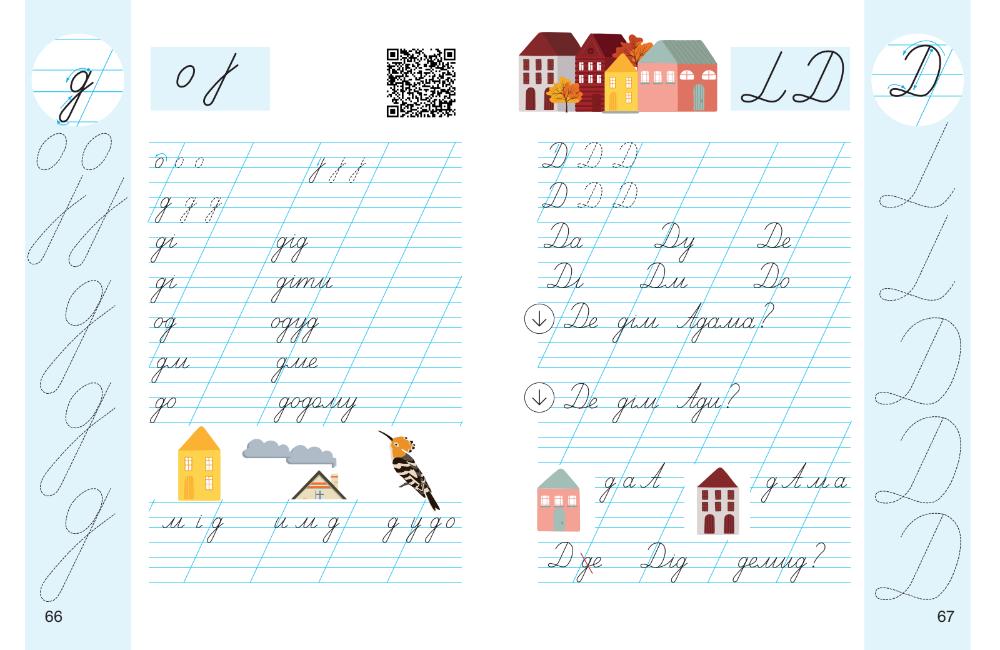 д
о ј
о о
ј ј
д
д
д
о о о ј ј ј
д д д
ді дід
ді діти
од одуд
дм дме
до додому
м і д и м д д у д о
66
L D
Д
Д Д Д
Д Д Д
Да Ду Де
Ді Ди До
Де дім Адама?
Де дім Ади?
д а А д А м а
Д де Дід демид?
L
L
D
D
D
67